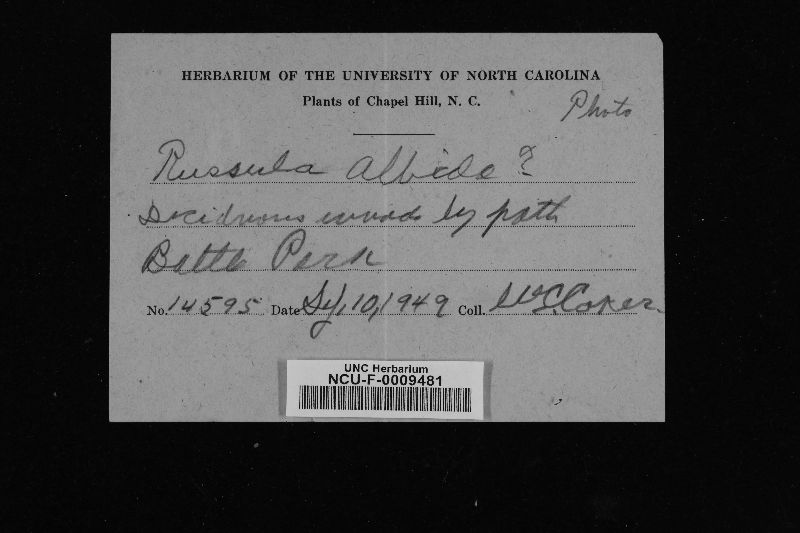 HERBARIUM OF THE UNIVERSITY OF NORTH CAROLINA
Plants of Chapel Hill, N. C.
Photo
Russula albida?
Deciduous woods by path
Battle Park
No. 14595 Date Sep, 10, 1949 Coll. W C Coker.
UNC Herbarium
NCU-F-0009481